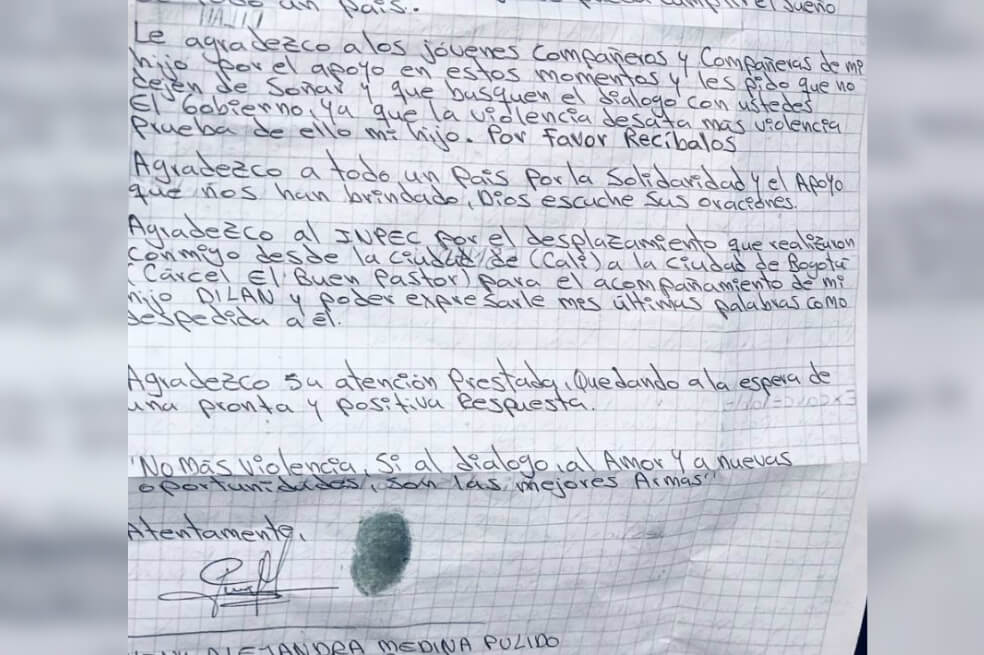 un País..
cumplir el sueño
Le agradezco a los jóvenes Compañeros y Compañeras de mi
hijo por el apoyo en estos momentos y les pido que no
dejen de soñar y que busquen el dialogo con ustedes
El Gobierno, ya que la violencia desata más violencia
Prueba de ello mi hijo. Por Favor Recíbalos
Agradezco a todo un País por la Solidaridad y el Apoyo
que nos han brindado, Dios escuche sus oraciones.
Agradezco al INPEC por el desplazamiento que realizaron
Conmigo desde la Ciudad de (Cali) a la Ciudad de Bogotá
(Cárcel El Buen Pastor) para el acompañamiento de mi
hijo DILAN y poder expresarle mes últimas palabras como
despedida a él.
Agradezco su atención Prestada, Quedando a la espera de
una pronta y positiva Respuesta.
"No Más Violencia, Si al dialogo, al Amor Y a nuevas
oportunidades, son las mejores Armas"
Atentamente,
ALEJANDRA MEDINA PULIDO